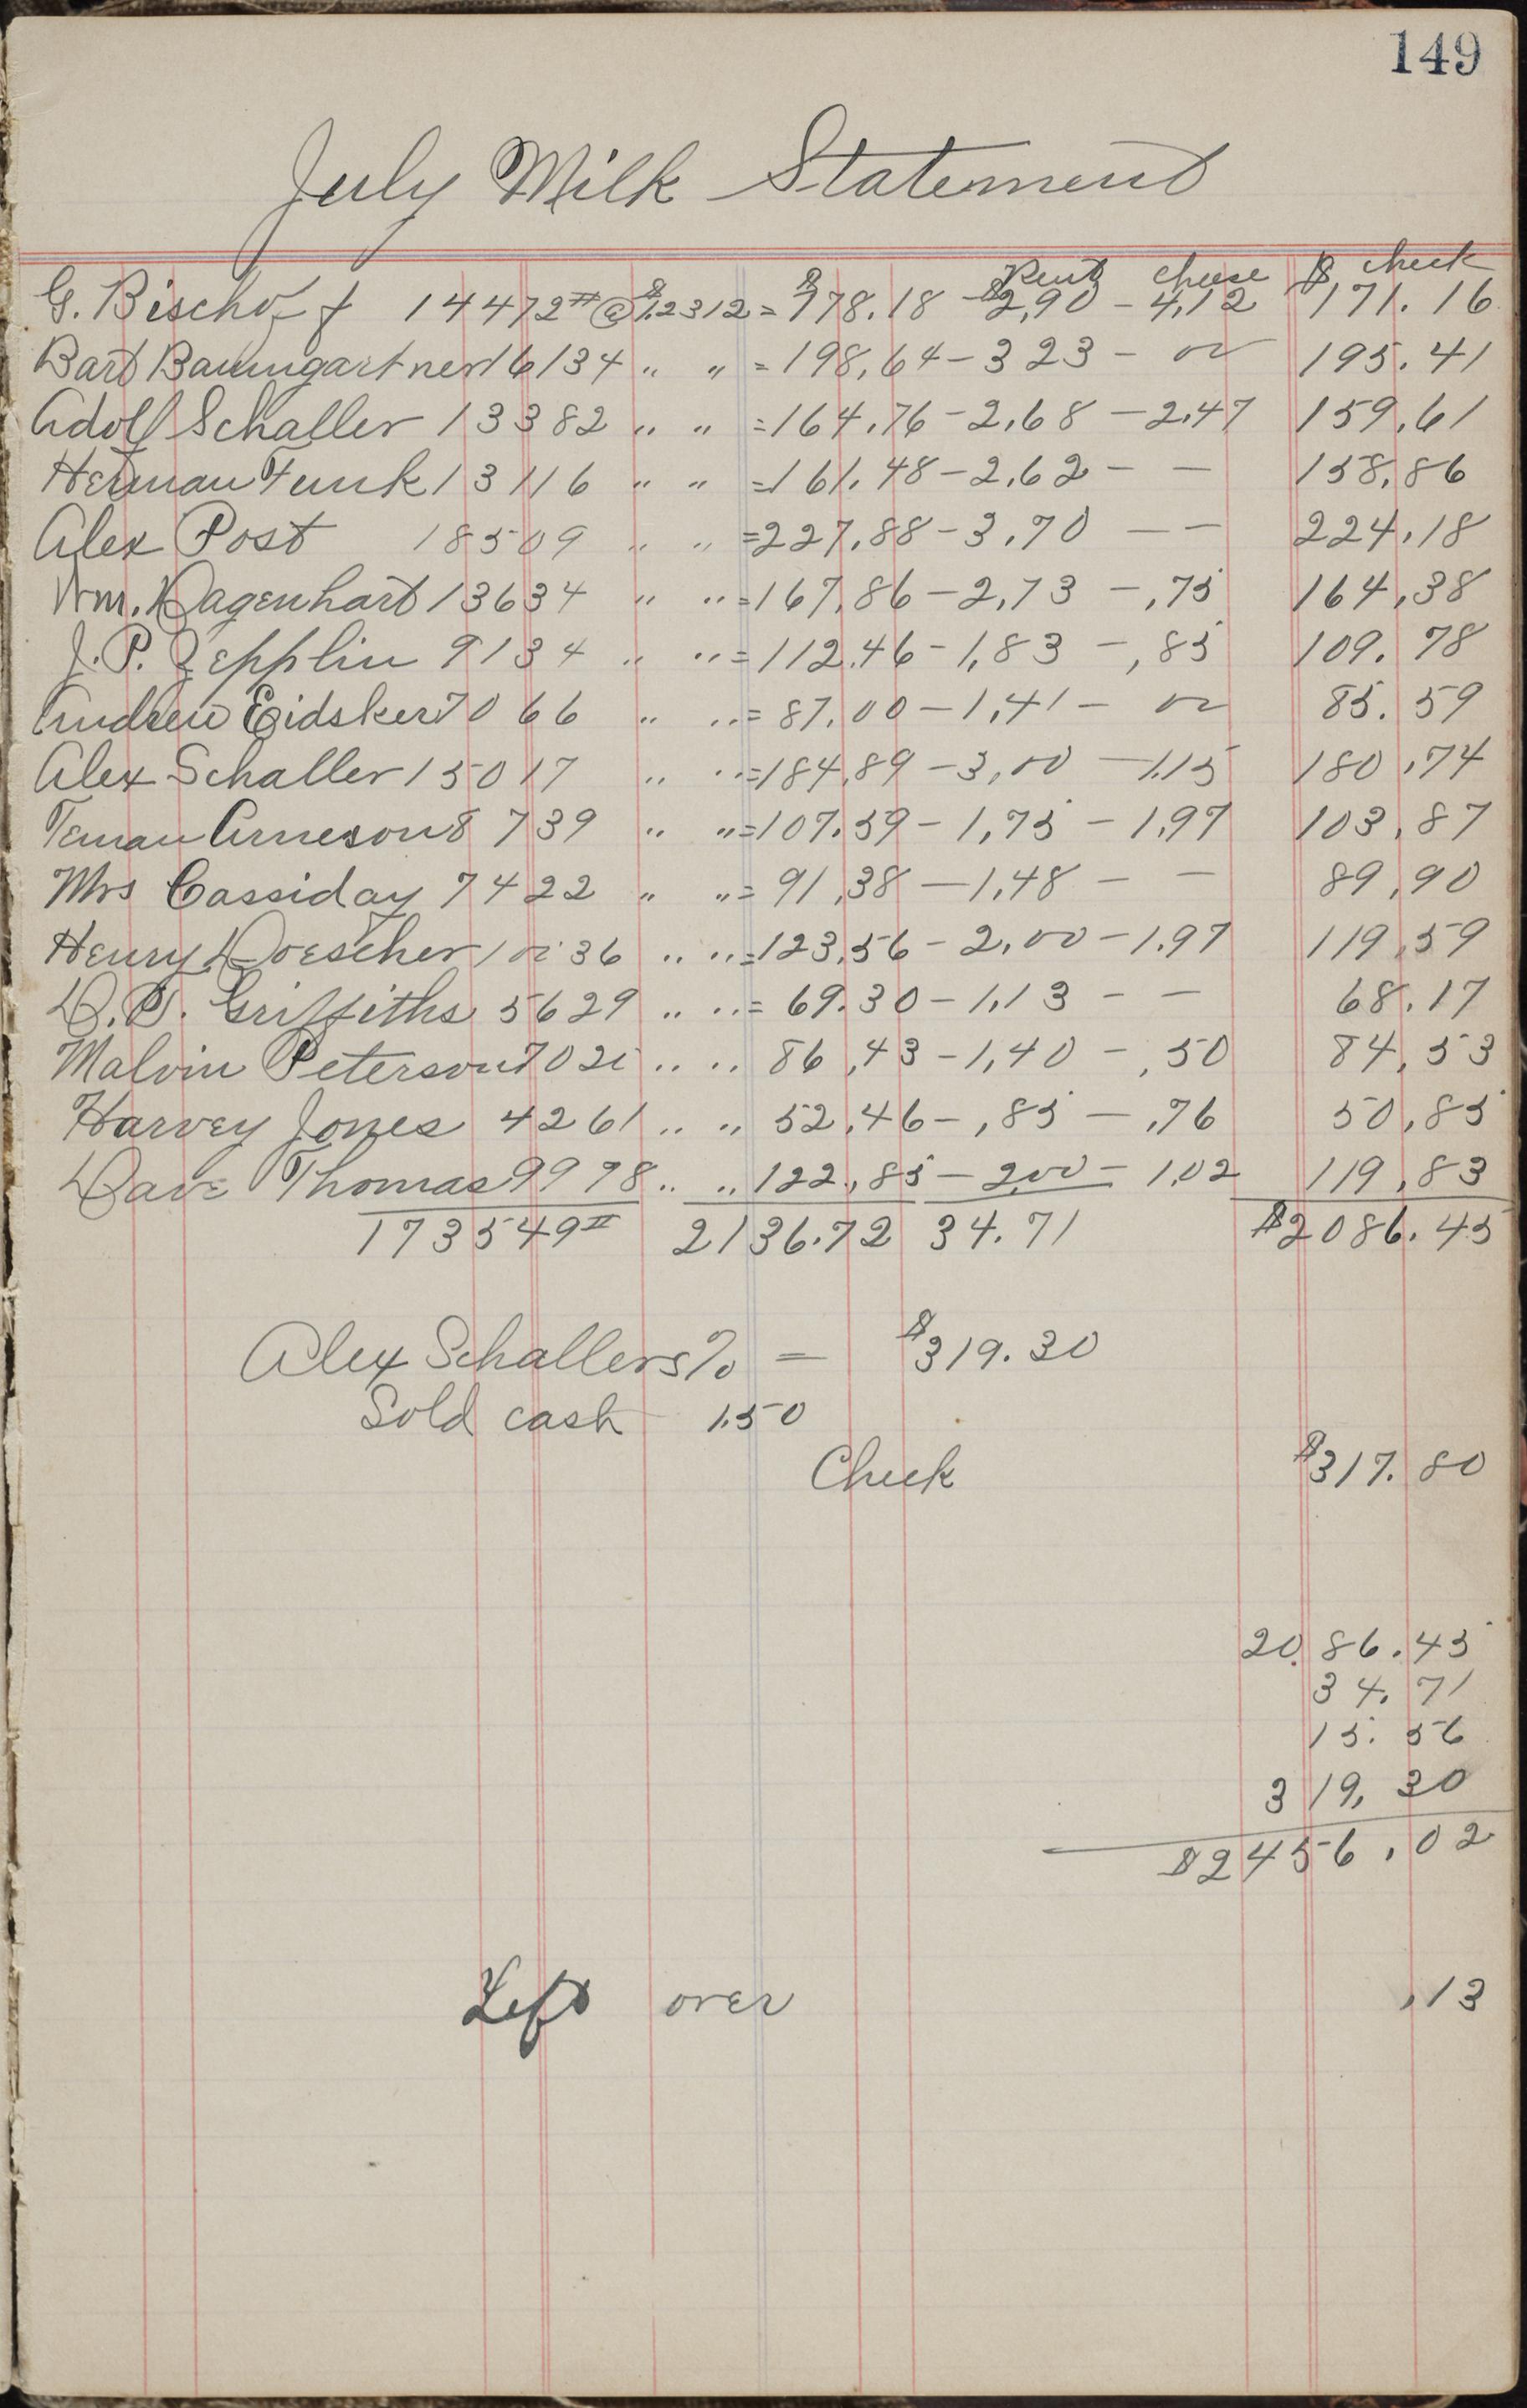 149
July Milk Statement
Rent cheese $ check
G. Bischoff 14472# @ $1.2312 = $178.18 - $2.90 - 4.12 171.16
Bart Baumgartner 16134 " " = 198.64 - 3 23 - 00 195.41
Adolf Schaller 13382 " " = 164.76 - 2.68 - 2.47 159.61
Herman Funk 13116 " " = 161.48 - 2.62 - - 158.86
Alex Post 18509 " " = 227.88 - 3.70 - - 224.18
Wm. Dagenhart 13634 " " = 167.86 - 2.73 - .75 164.38
J. P. Zepplin 9134 " " = 112.46 - 1.83 - .85 109.78
Andrew Eidsker 7066 " " = 87.00 - 1.41 - 00 85.59
Alex Schaller 15017 " " = 184.89 - 3.00 - 1.15 180.74
Teman Arneson 8739 " " = 107.59 - 1.75 - 1.97 103.87
Mrs Cassiday 7422 " " = 91.38 - 1.48 - - 89.90
Henry Doescher 10036 " " = 123.56 - 2.00 - 1.97 119.59
D. P. Griffiths 5629 " " = 69.30 - 1.13 - - 68.17
Malvin Peterson 7020 " " 86.43 - 1.40 - .50 84.53
Harvey Jones 4261 " " 52.46 - .85 - .76 50.85
Dave Thomas 9978 " " 122.85 - 2.00 - 1.02 119.83
173549# 2136.72 34.71 $2086.45
Alex Schallers % = $319.30
Sold cash 1.50
Check $317.80
2086.45
34.71
15.56
319.30
$2456.02
Left over .13